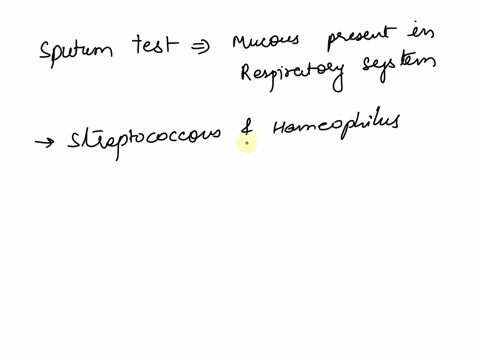 Sputum test ⇒ Mucous present in
Respiratory system
→ Streptococcous & Homeophilus